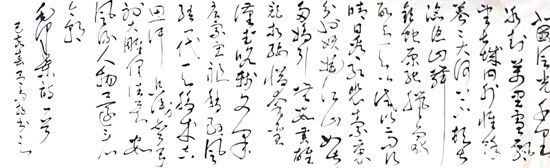 北国风光千里
冰封万里雪飘
望长城内外惟馀
莽莽大河上下顿失
滔滔山舞
银蛇原驰蜡象
欲与天公试比高须
晴日看红装素裹
分外妖娆江山如此
多娇引无数英雄
竞折腰惜秦皇
汉武略输文采
唐宗宋祖稍逊风
骚一代天骄成吉
思汗只识弯弓
射大雕俱往矣数
风流人物还看
今朝
毛泽东
己亥春